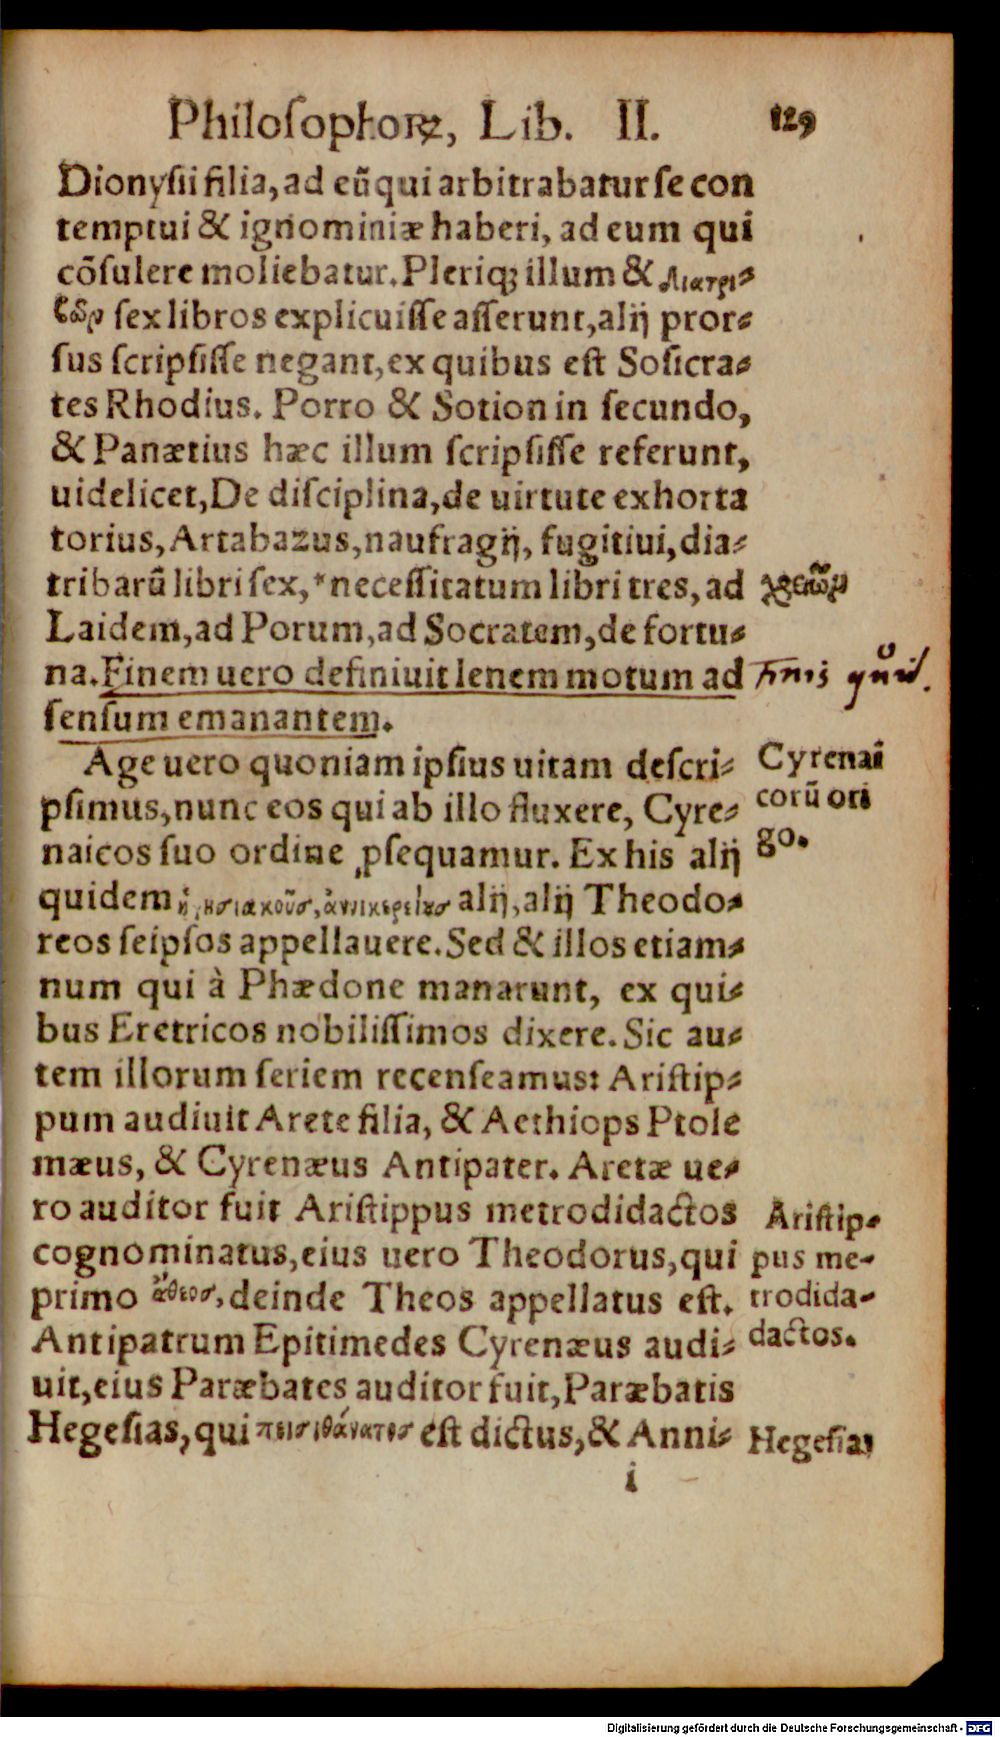 Philosophorꝝ, Lib. II. 129
Dionysii filia, ad eũ qui arbitrabatur se con
temptui & ignominiæ haberi, ad eum qui
cõsulere moliebatur. Pleriq; illum & διατρι⸗
βῶν sex libros explicuisse asserunt, alij pror⸗
sus scripsisse negant, ex quibus est Sosicra⸗
tes Rhodius. Porro & Sotion in secundo,
& Panætius hæc illum scripsisse referunt,
uidelicet, De disciplina, de uirtute exhorta
torius, Artabazus, naufragij, fugitiui, dia⸗
tribarũ libri sex, *necessitatum libri tres, ad
χρειῶν
Laidem, ad Porum, ad Socratem, de fortu⸗
na. Finem uero definiuit lenem motum ad
Finis quid.
sensum emanantem.
Age uero quoniam ipsius uitam descri⸗
psimus, nunc eos qui ab illo fluxere, Cyre⸗
naicos suo ordine ꝓsequamur. Ex his alij
Cyrenai
corũ ori
go.
quidem ἡγησιακοῦσ, ἀννικερείουσ alij, alij Theodo⸗
reos seipsos appellauere. Sed & illos etiam⸗
num qui à Phædone manarunt, ex qui⸗
bus Eretricos nobilissimos dixere. Sic au⸗
tem illorum seriem recenseamus: Aristip⸗
pum audiuit Arete filia, & Aethiops Ptole
mæus, & Cyrenæus Antipater. Aretæ ue⸗
ro auditor fuit Aristippus metrodidactos
cognominatus, eius uero Theodorus, qui
primo ἄθεοσ, deinde Theos appellatus est.
Antipatrum Epitimedes Cyrenæus audi⸗
Aristip⸗
pus me⸗
trodida⸗
dactos.
uit, eius Paræbates auditor fuit, Paræbatis
Hegesias, qui πεισιθάνατοσ est dictus, & Anni⸗
Hegesias
i
Digitalisierung gefördert durch die Deutsche Forschungsgemeinschaft - DFG